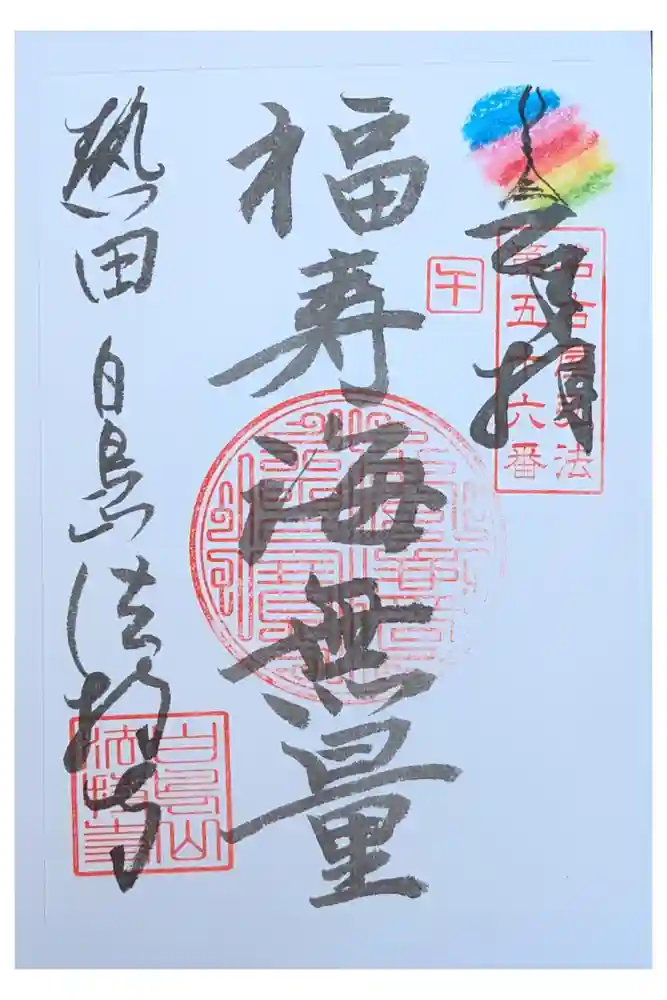 奉拝
第五十六番
午
福寿海無量
熱田 白鳥 法持寺
白鳥山
法持寺